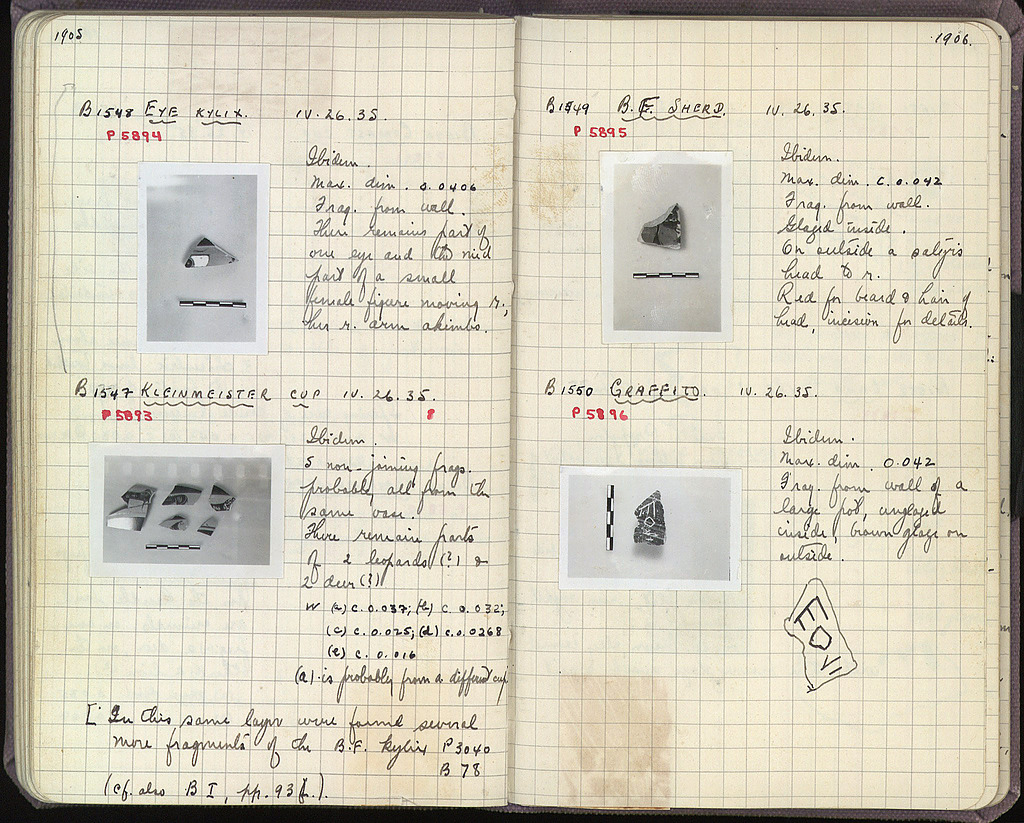 1905
B 1548 EYE KYLIX. IV. 26. 35
P 5894
Ibidem.
Max. dim. 0.0406
Frag. from wall.
There remains part of
one eye and the mid
part of a small
female figure moving r.,
her r. arm akimbo.
B 1547 KLEINMEISTER CUP IV. 26. 35.
P 5893 8
Ibidem.
5 non-joining frags.
probably all from the
same vase.
There remain parts
of 2 leopards (?) &
2 deer (?)
W (a) c. 0.037; (b) c. 0.032;
(c) c. 0.025; (d) c. 0.0268
(e) c. 0.016
(a) is probably from a different cup
[ In this same layer were found several
more fragments of the B.F. kylix P 3040
B 78
(cf. also B I, pp. 93 f.).
1906.
B 1549 B.F. SHERD. IV. 26. 35.
P 5895
Ibidem.
Max. dim. c. 0.042
Frag. from wall.
Glazed inside.
On outside a satyr's
head to r.
Red for beard & hair of
head, incision for details.
B 1550 GRAFFITO. IV. 26. 35.
P 5896
Ibidem.
Max. dim. 0.042
Frag. from wall of a
large pot, unglazed
inside, brown glaze on
outside.